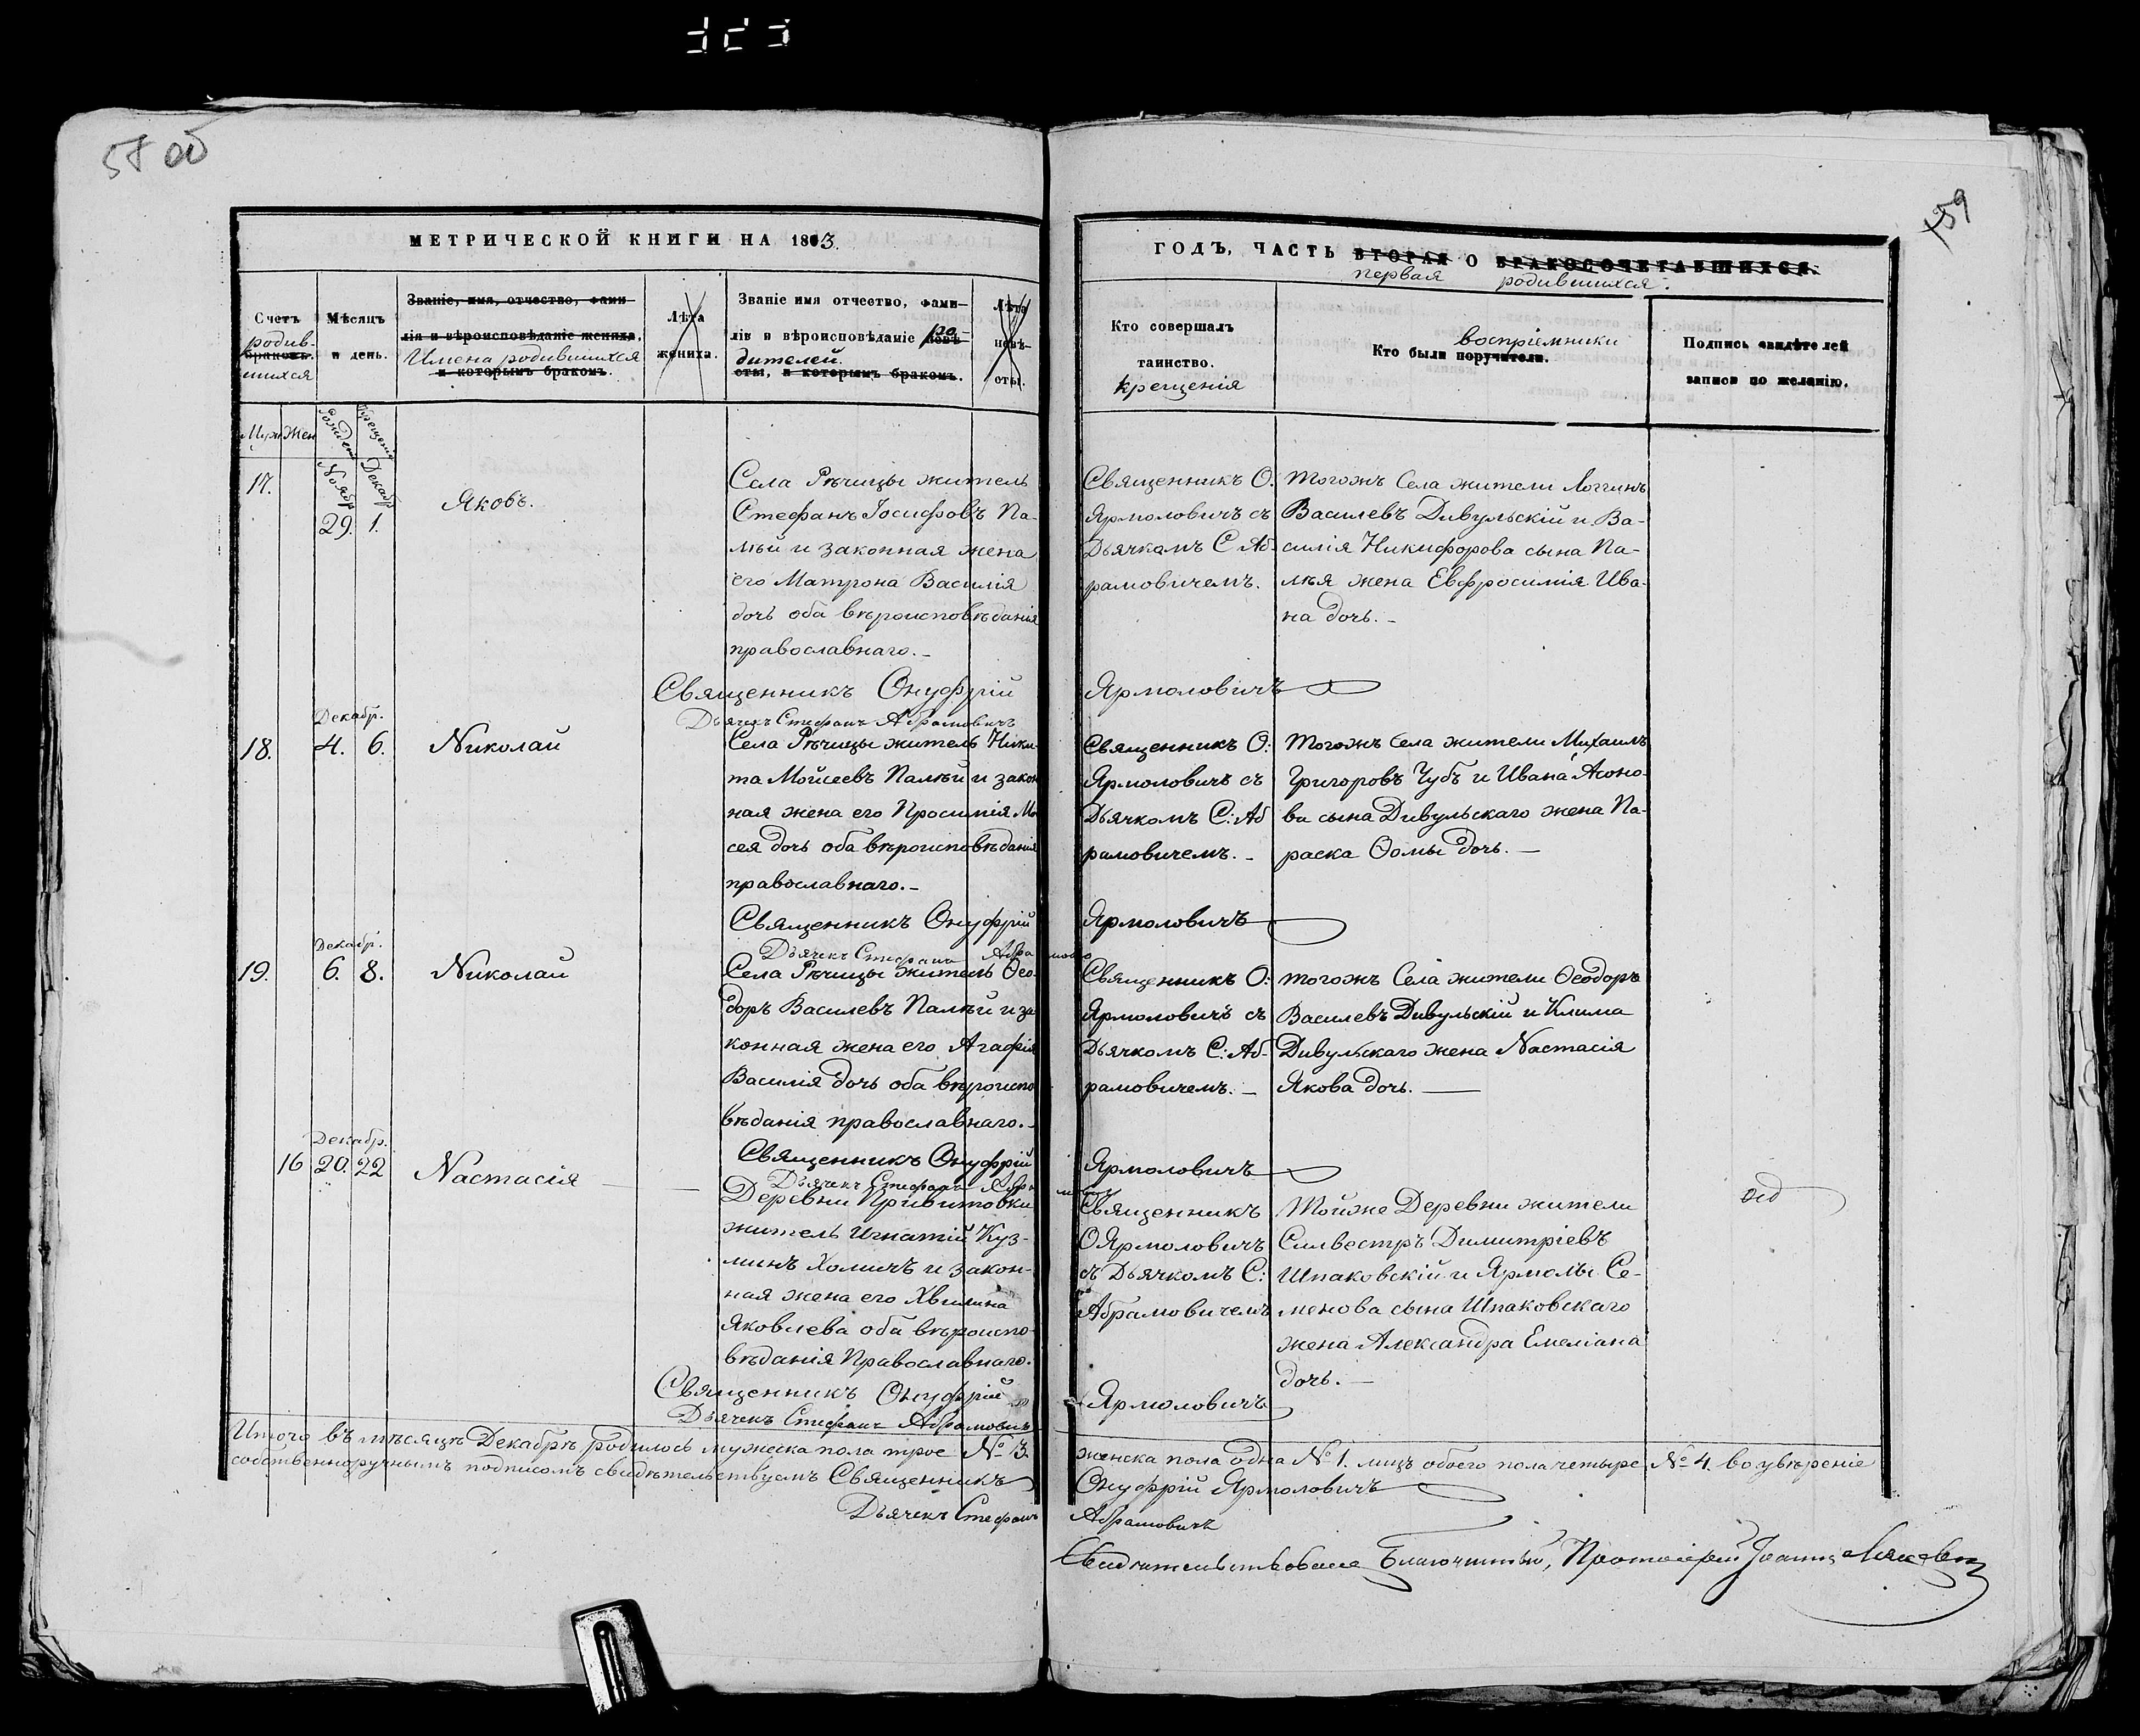 58 об
59
МЕТРИЧЕСКОЙ КНИГИ НА 1843
ГОДЪ, ЧАСТЬ ВТОРАЯ О БРАКОСОЧЕТАВШИХСЯ.
первая родившихся.
Счетъ
родив-
браковъ.
шихся
Мѣсяцъ
и день.
Званіе, имя, отчество, фами-
лія и вѣроисповѣданіе жениха,
Имена родившихся
и которымъ бракомъ.
Лѣта
жениха.
Званіе имя отчество, фами-
лія и вѣроисповѣданіе невѣ-
ро-
дителей
сты, и которымъ бракомъ.
Лѣта
невѣ-
сты.
Кто совершалъ
таинство.
крещенія
воспріемники
Кто были поручители.
Подпись свидѣтелей
записи по желанію.
Муж Жен
Рожден Крещенія
17.
Ноябр Декабр
29. 1.
Яковъ.
Села Рѣчицы житель
Стефанъ Іосифовъ Па-
лѣй и законная жена
его Матрона Василія
дочь оба вѣроисповѣданія
православнаго.-
Священникъ О:
Ярмоловичъ съ
Дьячкамъ С Аб-
рамовичемъ.
тогожъ Села жители Логгинъ
Василевъ Дивульскій и Ва-
силія Никифорова сына Па-
лѣя жена Евфросинія Ива-
на дочь.-
Священникъ Онуфрій Ярмоловичъ
Дьячекъ Стефанъ Абрамовичъ
18.
Декабр.
4. 6.
Николай
Села Рѣчицы житель Ники-
та Мойсеевъ Палѣй и закон
ная жена его Просинія Мо
сея дочь оба вѣроисповѣданія
православнаго.-
Священникъ О:
Ярмоловичъ съ
Дьячкомъ С: Аб
рамовичемъ.-
тогожъ Села жители Михаилъ
Григоровъ Чубъ и Ивана
ва сына Дивульскаго жена Па-
раска Ѳомы дочь.-
Священникъ Онуфрій Ярмоловичъ
Дьячекъ Стефанъ
19.
Декабр.
6. 8.
Николай
Села Рѣчицы житель Ѳео-
доръ Василевъ Палѣй и за
конная жена его Агафія
Василія дочь оба вѣроиспо
вѣданія православнаго.-
Священникъ О:
Ярмоловичъ съ
Дьячкомъ С: Аб-
рамовичемъ.-
тогожъ Села жители Ѳеодоръ
Василевъ Дивульскій и Клима
Дивульскаго жена Настасія
Якова дочь.
Священникъ Онуфрій Ярмоловичъ
Дьячекъ Стефанъ
16
Декабр.
20. 22
Настасія
Деревни Привитовки
житель Игнатій Куз-
минъ Хомичъ и закон-
ная жена его Хвилина
Яковлева оба вѣроиспо-
вѣданія Православнаго.
Священникъ
О Ярмоловичъ
съ Дьячкомъ С:
Абрамовичемъ
Тойже Деревни жители
Силвестръ Димитріевъ
Шпаковскій и Ярмолы Се-
менова сына Шпаковскаго
жена Александра Емеліана
дочь.-
Священникъ Онуфрій Ярмоловичъ
Дьячекъ Стефанъ Абрамовичъ
Итого въ мѣсяцѣ Декабрѣ родилось мужеска пола трое № 3. женска пола одна № 1. лицъ обоего пола четыре № 4. во увѣреніе
собственноручнымъ подписомъ свидѣтельствуемъ Священникъ Онуфрій Ярмоловичъ
Дьячекъ Стефанъ Абрамовичъ
Свидѣтельствовалъ Благочинный, Протоіерей Іоаннъ